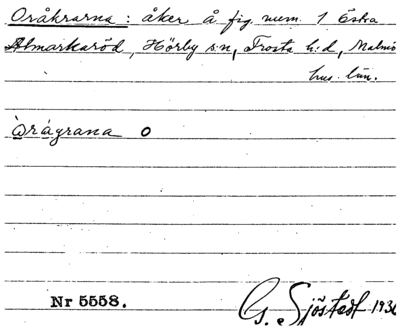 Oråkrarna : åker å fig. num. 1 Östra
Almarkaröd, Hörby s:n, Frosta h:d, Malmö
hus. län.
òrågrana o
Nr 5558.
G. Sjöstedt 1936